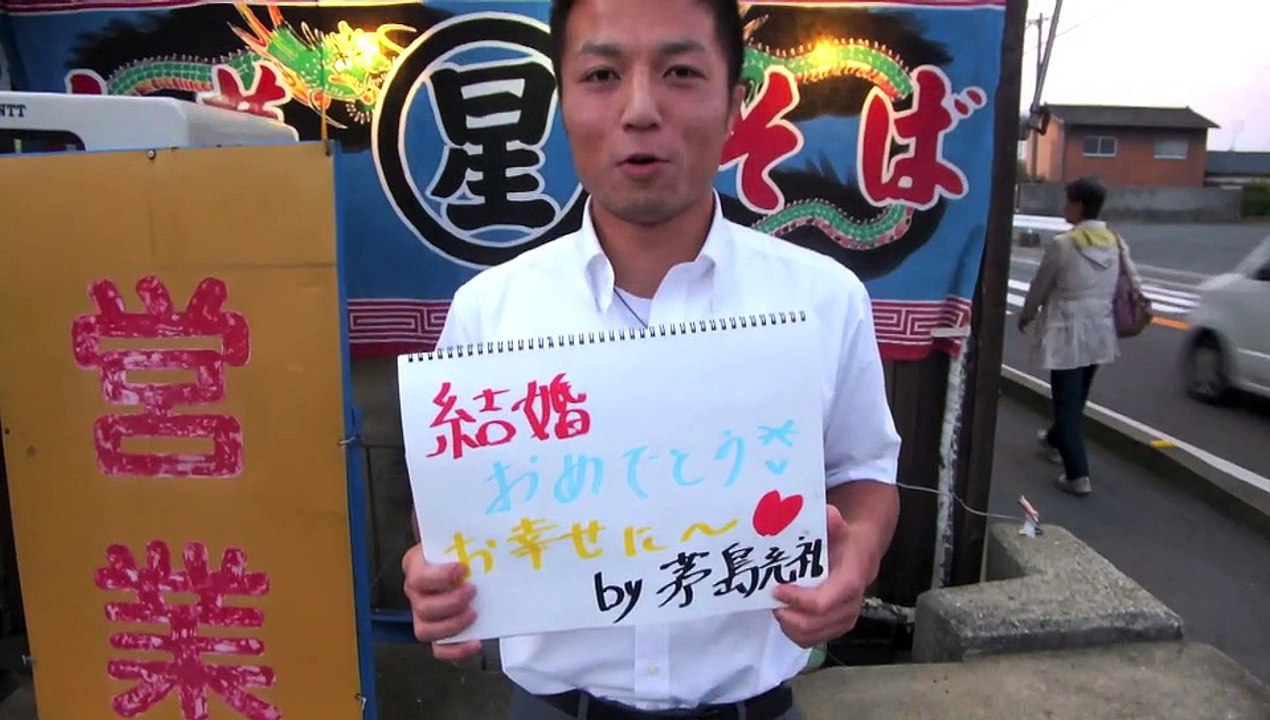 NTT
星
そば
営業
結婚
おめでとう
お幸せに〜
by 茅島充礼